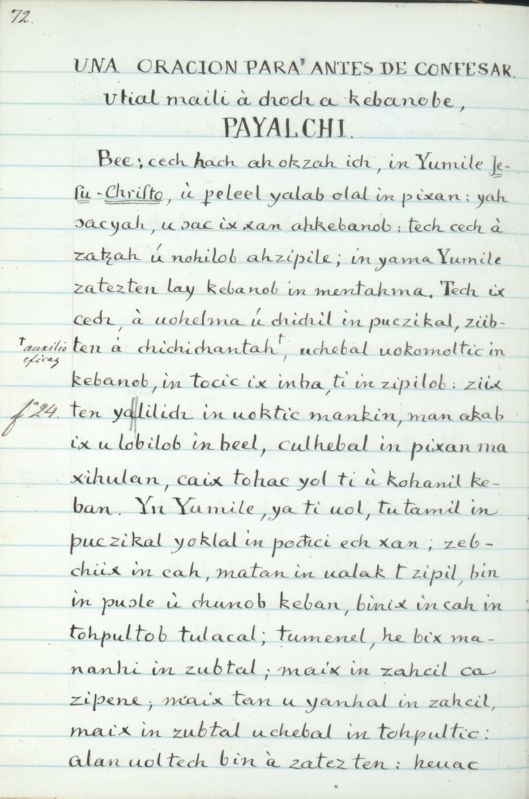 72.
UNA ORACION PARA ANTES DE CONFESAR.
vtial maili à choch a kebanobe,
PAYALCHI.
Bee; cech hach ah okzah ich, in Yumile Je-
su-Christo, ù peleel yalab olal in pixan: yah
ɔacyah, u ɔac ix xan ahkebanob: tech cech à
zatzah ú nohilob ahzipile; in yama Yumile
zatezten lay kebanob in mentahma. Tech ix
cech, à uohelma ú chichil in puczikal, ziib-
ten à chichichantah†, uchebal uokomoltic in
† auxilio
eficaz
kebanob, in tocic ix inba, ti in zipilob: ziix
fº 24. ten yalilich in uoktic mankin, man akab
ix u lobilob in beel, culhebal in pixan ma
xihulan, caix tohac yol ti ù kohanil ke-
ban. Yn Yumile, ya ti uol, tutamil in
puczikal yoklal in pochci ech xan; zeb-
chiix in cah, matan in ualak t zipil, bin
in puɔle ù chunob keban, binix in cah in
tohpultob tulacal; tumenel, he bix ma-
nanhi in zubtal; maix in zahcil ca
zipene; maix tan u yanhal in zahcil,
maix in zubtal uchebal in tohpultic:
alan uoltech bin à zatezten: heuac